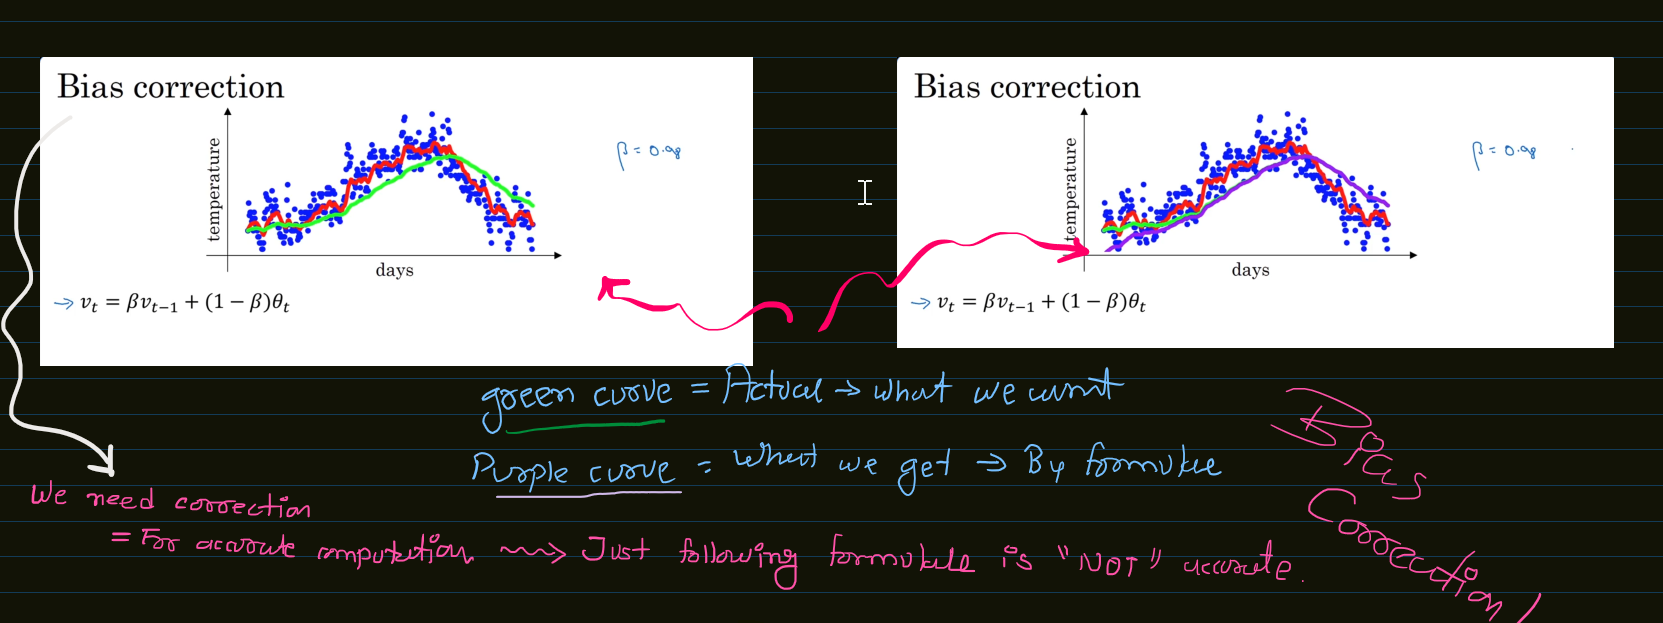 Bias correction
temperature
β = 0.98
days
→ vₜ = βvₜ₋₁ + (1 − β)θₜ
Bias correction
temperature
β = 0.98
days
→ vₜ = βvₜ₋₁ + (1 − β)θₜ
green curve = Actual → what we want
Purple curve = What we get → By formulae
We need correction
= For accurate computation ⟿ Just following formulae is "NOT" accurate.
Bias
Correction